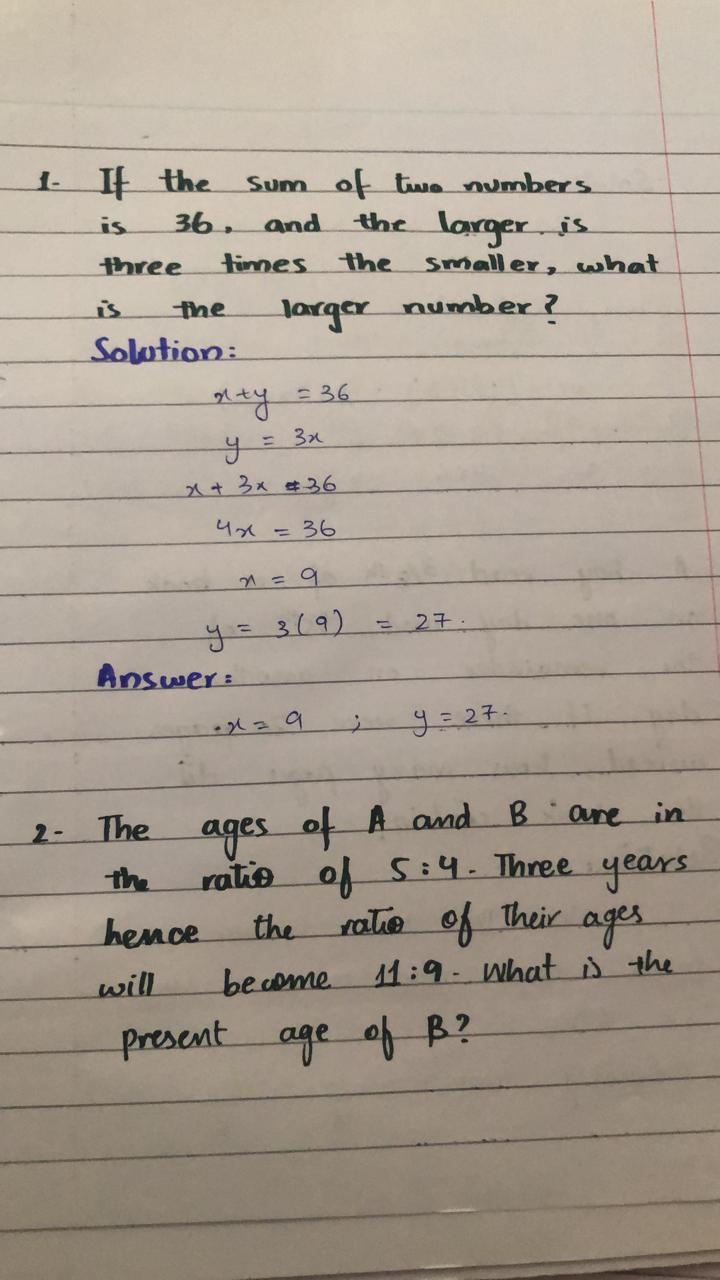 1- If the sum of two numbers
is 36, and the larger is
three times the smaller, what
is the larger number?
Solution:
x+y = 36
y = 3x
x + 3x = 36
4x = 36
x = 9
y = 3(9) = 27.
Answer:
x = 9 ; y = 27.
2- The ages of A and B are in
the ratio of 5:4. Three years
hence the ratio of Their ages
will become 11:9. What is the
present age of B?